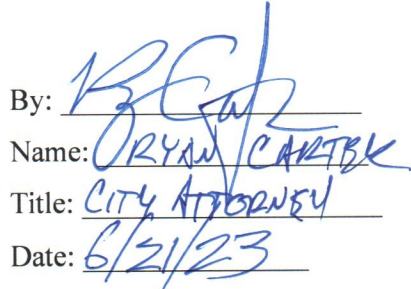 By:
Name: RYAN CARTER
Title: CITY ATTORNEY
Date: 6/21/23